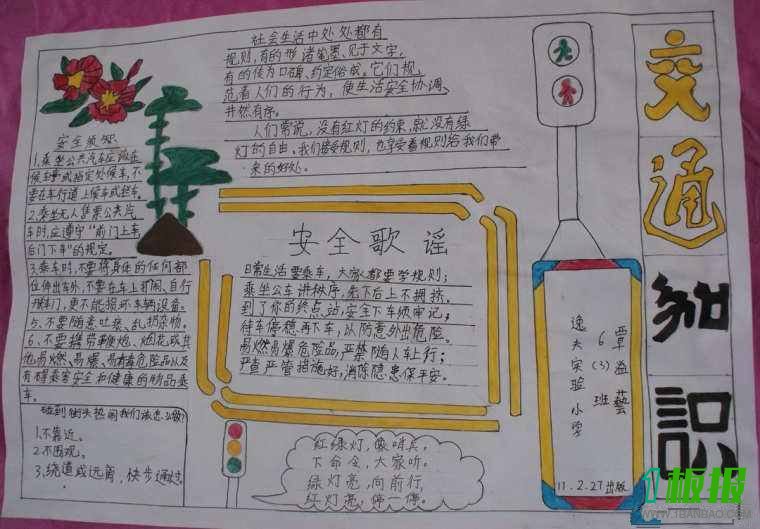 社会生活中处处都有
规则,有的形诸笔墨、见于文字,
有的传为口碑、约定俗成。它们规
范着人们的行为,使生活安全协调、
井然有序。
人们常说,没有红灯的约束,就没有绿
灯的自由。我们接受规则,也享受着规则给我们带
来的好处。
安全须知
1、乘坐公共汽车应该在
候车或指定处候车,不
要在车行道上候车或拦车。
2、乘坐无人售票公共汽
车时,应遵守"前门上车
后门下车"的规定。
3、乘车时,不要将身体的任何部
位伸出车外,不要在车上打闹、自行
开车门,更不能损坏车辆设备。
5、不要随意吐痰、乱扔杂物。
6、不要携带鞭炮、烟花,或其
他易燃、易爆、易有毒危险品以及
有碍乘客安全和健康的物品乘
车。
碰到街头热闹我们该怎么做?
1.不靠近。
2.不围观。
3.绕道或远离,快步通过。
安全歌谣
日常生活要乘车,大家都要学规则;
乘坐公车讲秩序,先下后上不拥挤。
到了你的终点站,安全下车须牢记;
待车停稳再下车,以防意外出危险。
易燃易爆危险品,严禁随人车上行;
严查严管措施好,消除隐患保平安。
红绿灯,像哨兵,
下命令,大家听。
绿灯亮,向前行,
红灯亮,停一停。
逸夫实验小学
6(3)班
覃益藝
11.2.27出版
交通知识
1板报
WWW.1BANBAO.COM